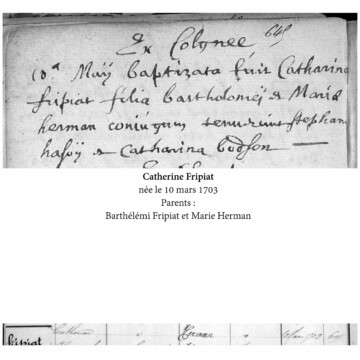 Ex Colognee 648
10a Maÿ baptizata fuit Catharina
fripiat filia bartholomëj & Mariæ
herman coniugum tenuerunt stephan
& Catharina bodson
Catherine Fripiat
née le 10 mars 1703
Parents :
Barthélémi Fripiat et Marie Herman
fripiat Catherine Herman